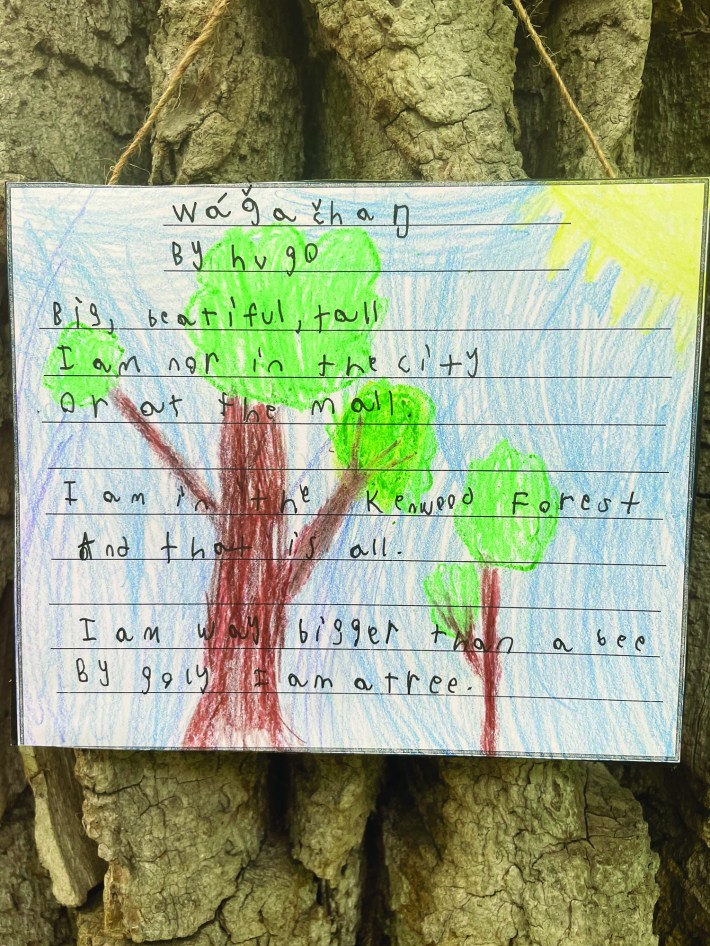 Wáǧačhaŋ
By hugo
Big, beatiful, tall
I am nor in the city
Or at the mall.
I am in the Kenwood Forest
And that is all.
I am way bigger than a bee
By goly I am a tree.